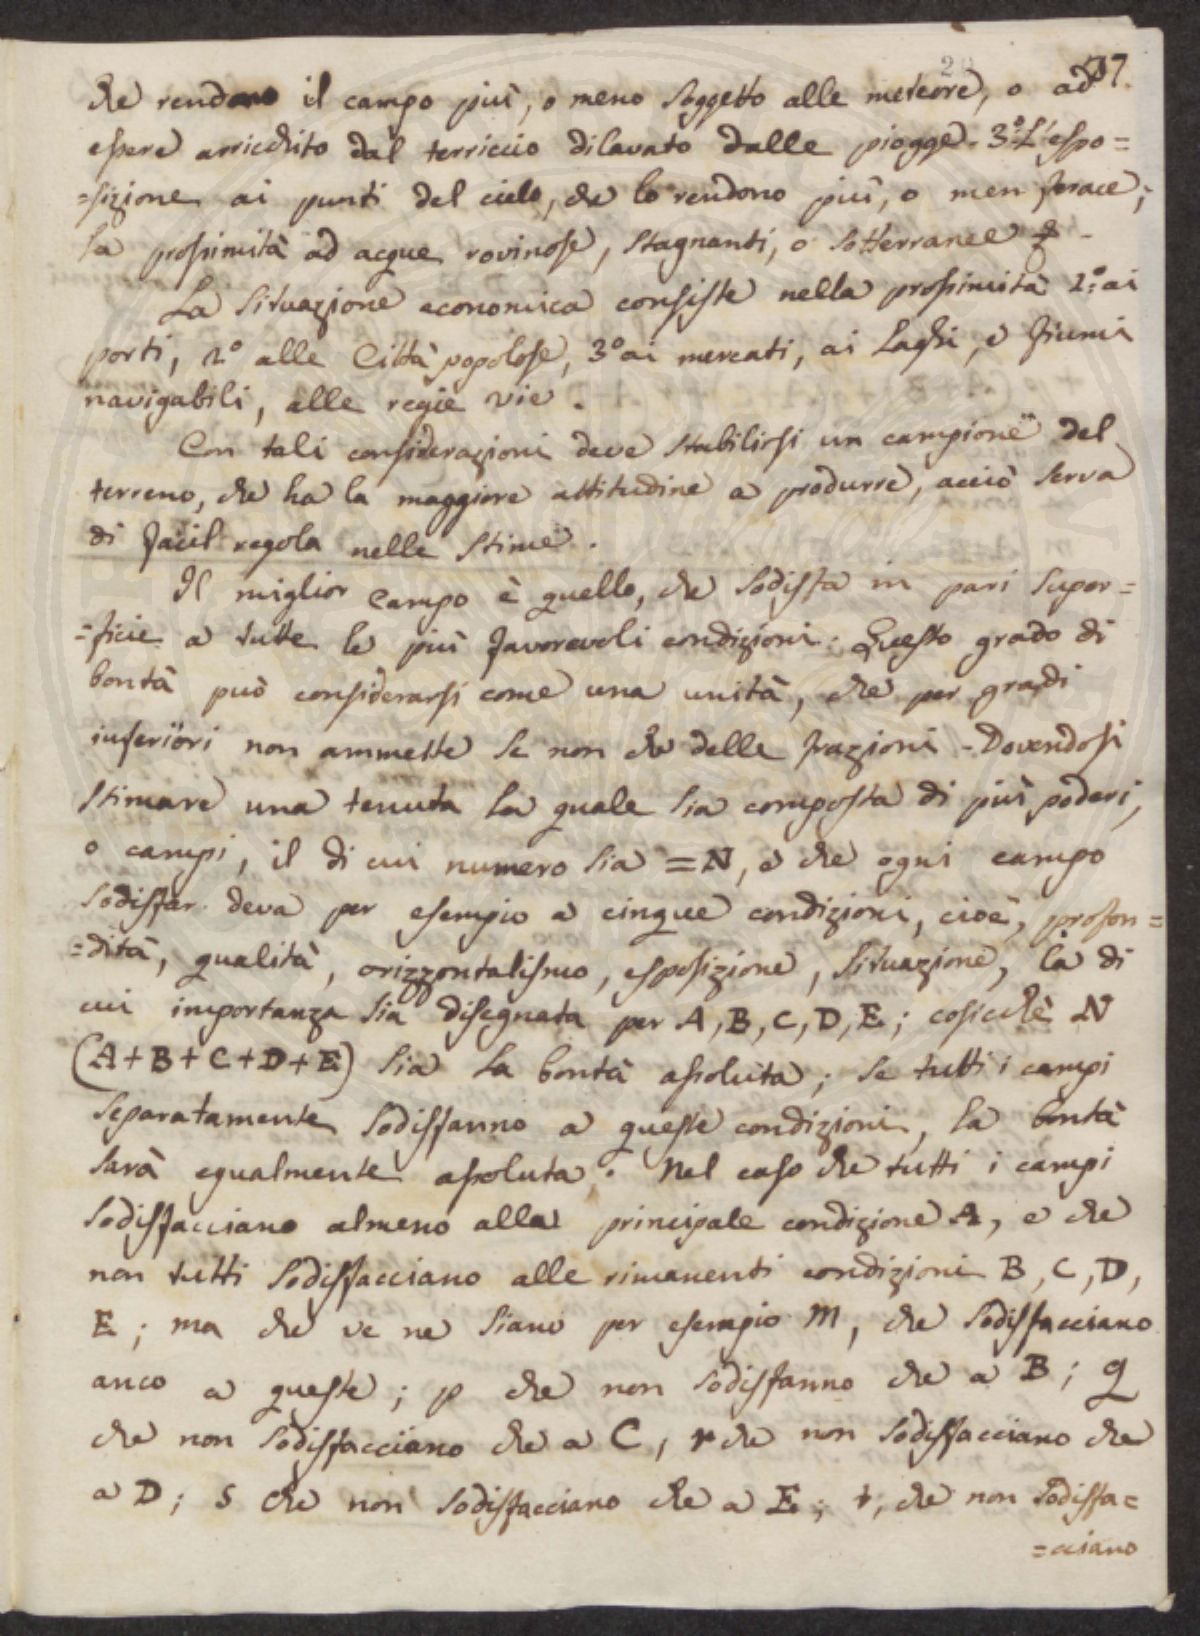 37.
che rendono il campo più, o meno soggetto alle meteore, o ad
essere arricchito dal terriccio dilavato dalle piogge. 3.° L'espo=
=sizione ai punti del cielo, che lo rendono più, o men ferace;
la prossimità ad acque rovinose, stagnanti, o sotterranee
La situazione economica consiste nella prossimità 1.° ai
porti, 2.° alle Città popolose, 3.° ai mercati, ai Laghi, e fiumi
navigabili, alle regie vie.
Con tali considerazioni deve stabilirsi un campione del
terreno, che ha la maggiore attitudine a produrre, acciò serva
di facil regola nelle stime.
Il miglior campo è quello, che sodisfa in pari super=
=ficie a tutte le più favorevoli condizioni: Questo grado di
bontà può considerarsi come una unità, che per gradi
inferiori non ammette se non che delle frazioni. Dovendosi
stimare una tenuta la quale sia composta di più poderi,
o campi, il di cui numero sia = N, e che ogni campo
sodisfar deva per esempio a cinque condizioni, cioè, profon=
=dità, qualità, orizzontalismo, esposizione, situazione, la di
cui importanza sia disegnata per A, B, C, D, E; cosicchè N
(A+B+C+D+E) sia la bontà assoluta; se tutti i campi
separatamente sodisfanno a queste condizioni, la bontà
sarà egualmente assoluta. Nel caso che tutti i campi
sodisfacciano almeno alla principale condizione A, e che
non tutti sodisfacciano alle rimanenti condizioni B, C, D,
E; ma che ve ne siano per esempio m, che sodisfacciano
anco a queste; p che non sodisfanno che a B; q
che non sodisfacciano che a C, r che non sodisfacciano che
a D; s che non sodisfacciano che a E; t, che non sodisfa=
=cciano